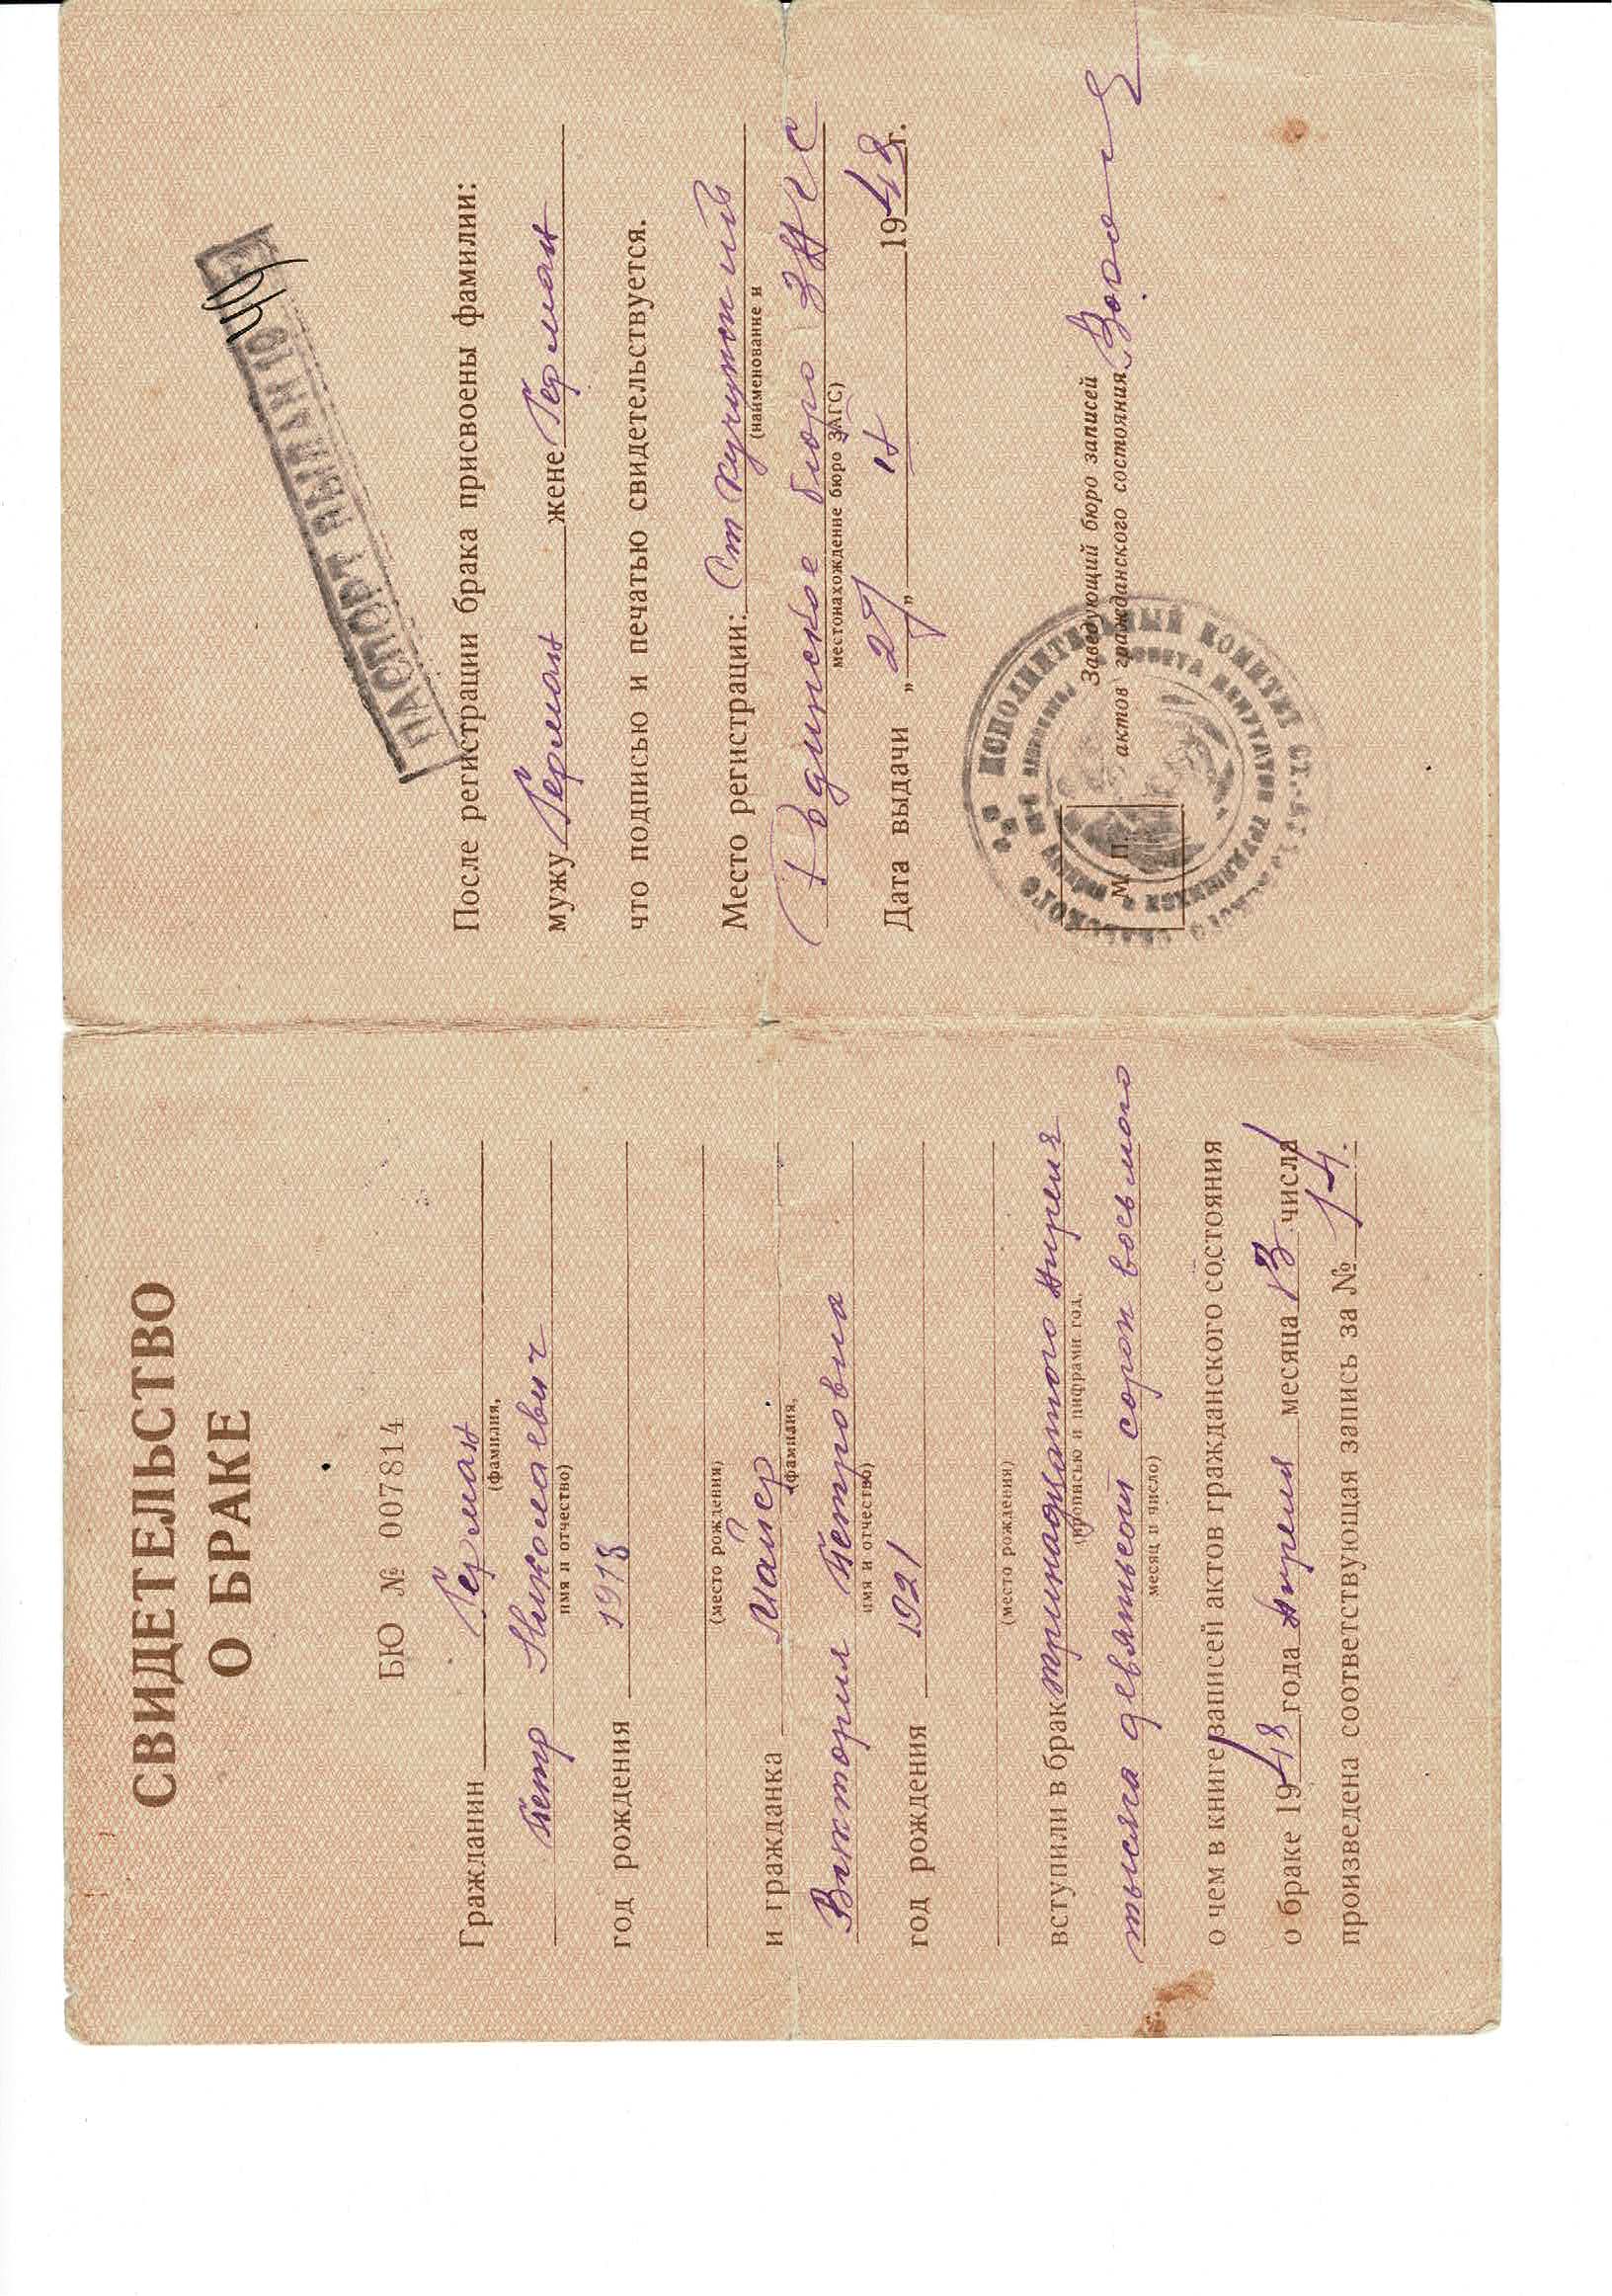 СВИДЕТЕЛЬСТВО
О БРАКЕ
БЮ № 007814
Гражданин Герман
(фамилия,
Петр Николаевич
имя и отчество)
год рождения 1918
(место рождения)
и гражданка Майер
(фамилия,
Виктория Петровна
имя и отчество)
год рождения 1921
(место рождения)
вступили в брак тринадцатого Апреля
(прописью и цифрами год,
тысяча девятьсот сорок восьмого
месяц и число)
о чем в книге записей актов гражданского состояния
о браке 1948 года Апреля месяца 13 числа
произведена соответствующая запись за № 14.
ПАСПОРТ ВЫДАН 1949
После регистрации брака присвоены фамилии:
мужу Герман жене Герман
что подписью и печатью свидетельствуется.
Место регистрации: Ст Кучукский
(наименование и
Родинское бюро ЗАГС
местонахождение бюро ЗАГС)
Дата выдачи „27„ 1948г.
ИСПОЛНИТЕЛЬНЫЙ КОМИТЕТ
ДЕПУТАТОВ ТРУДЯЩИХСЯ
М. П.
Заведующий бюро записей
актов гражданского состояния